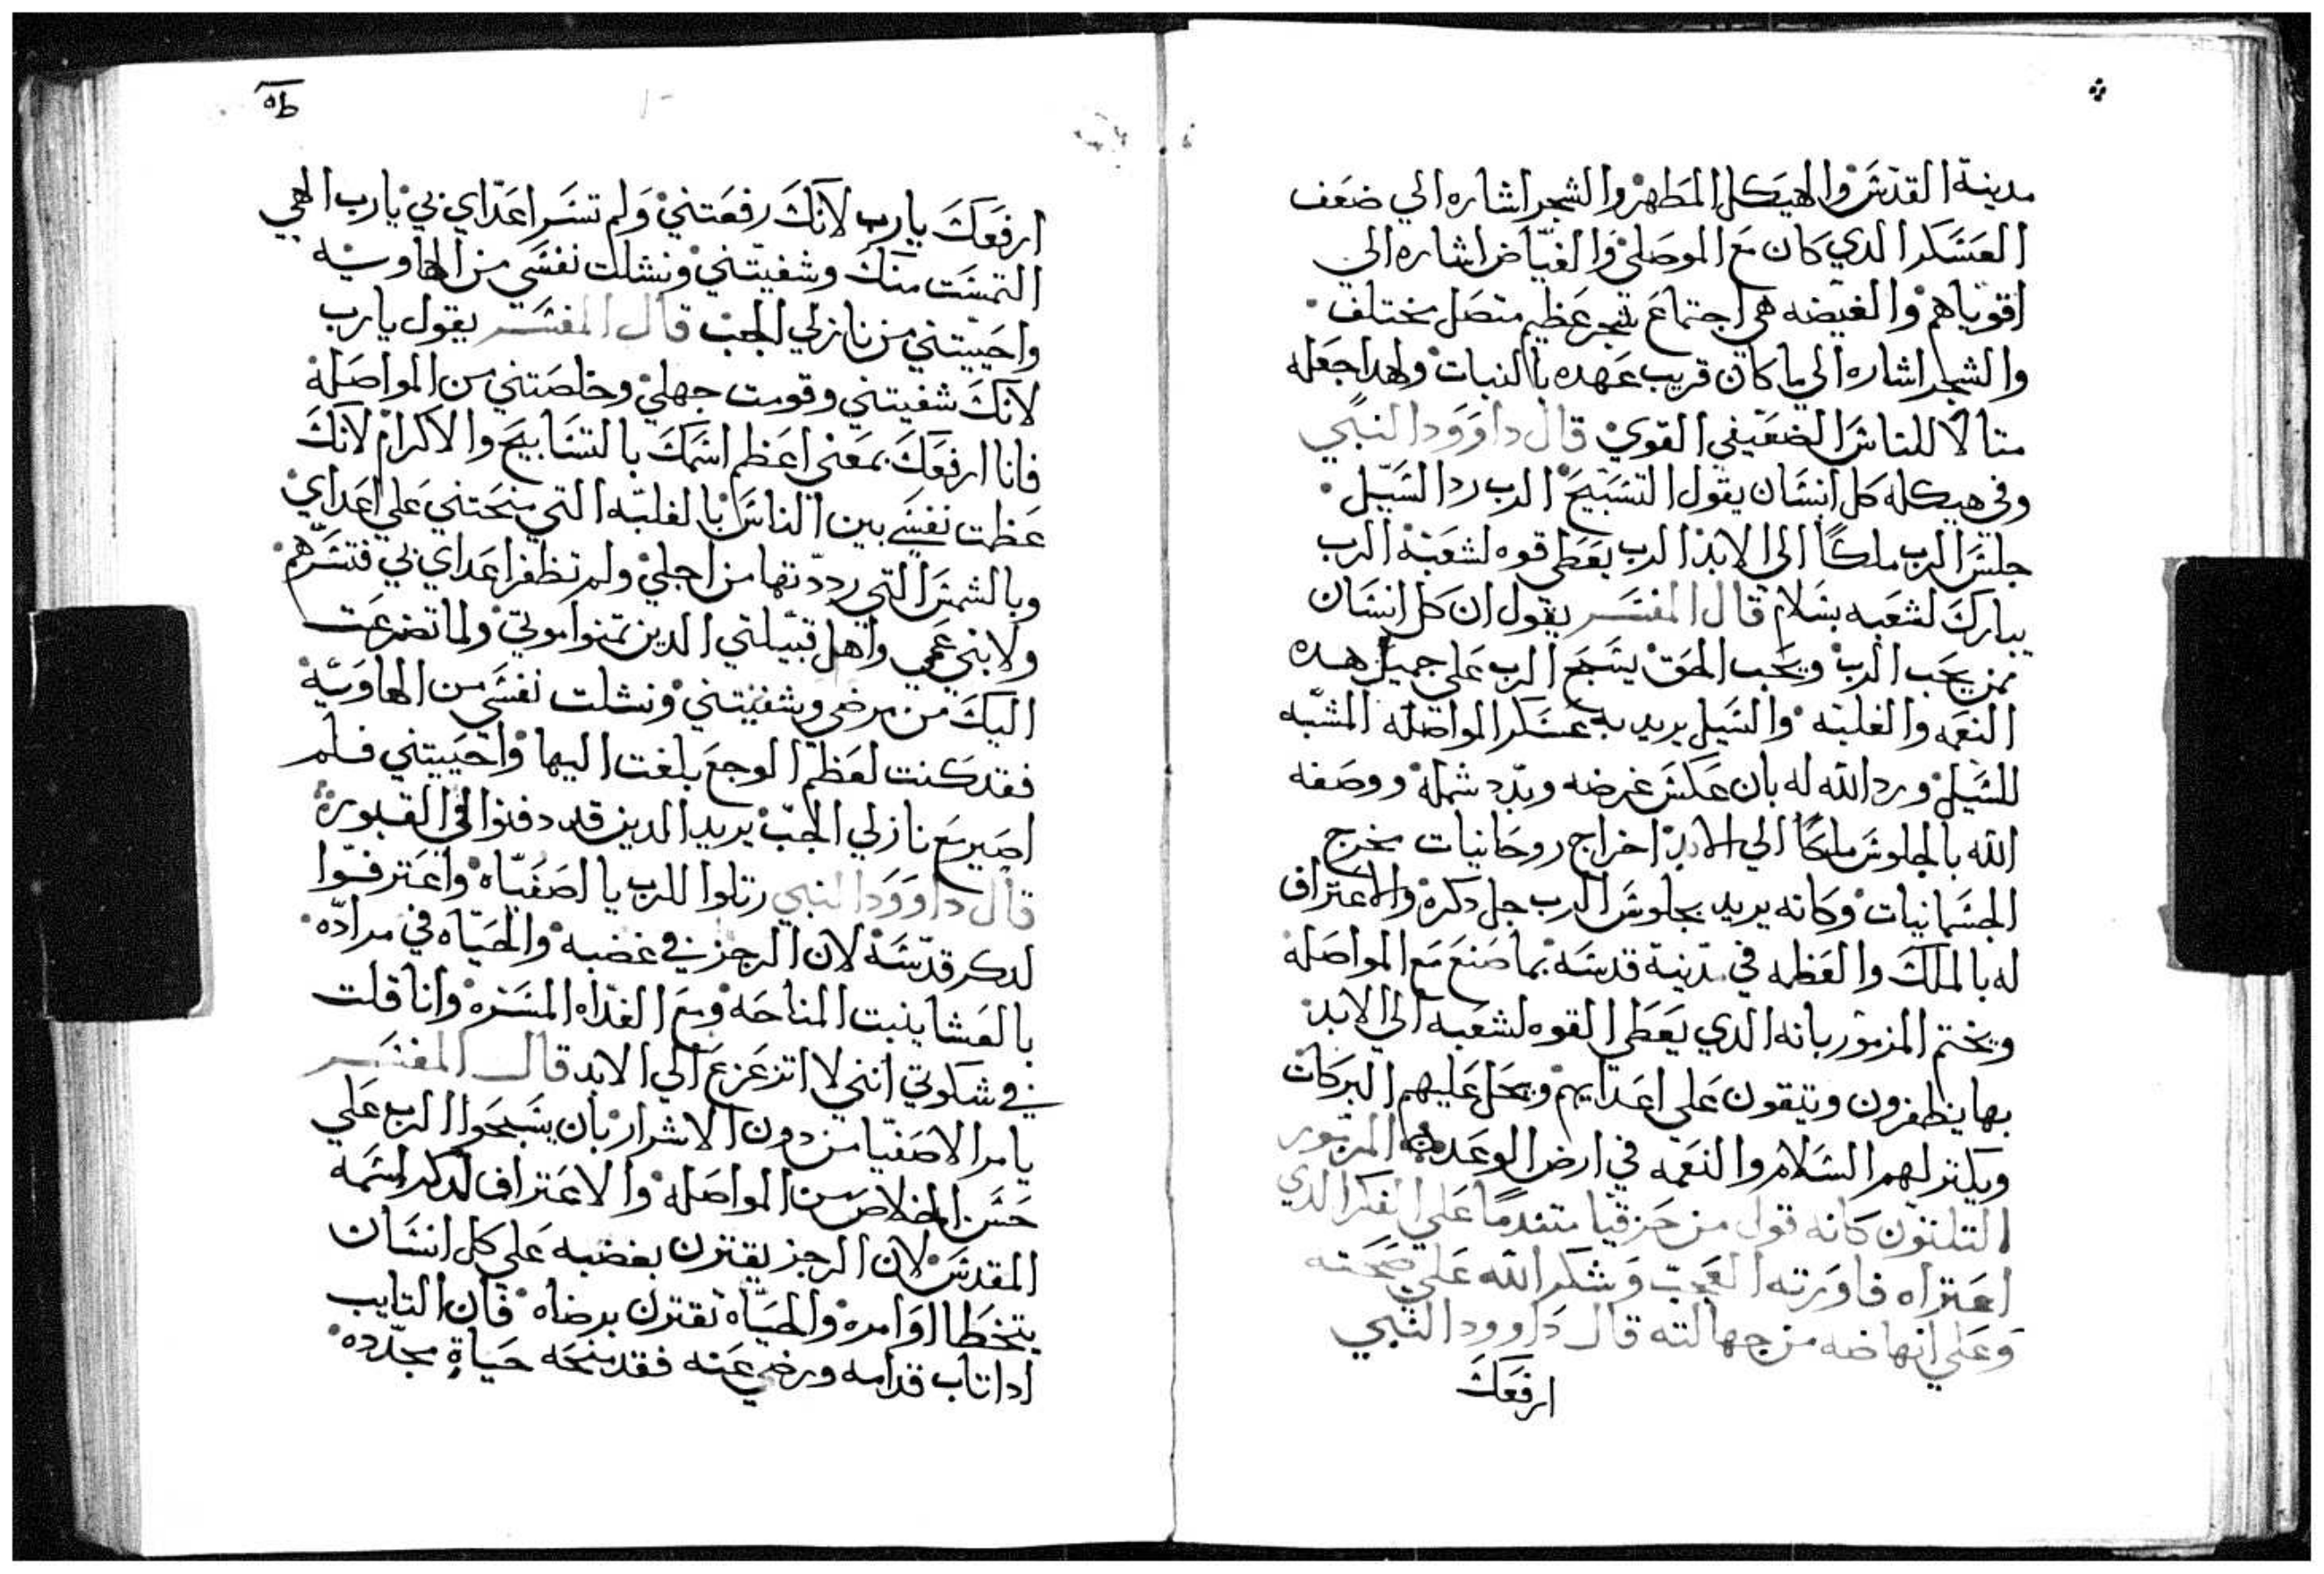 مدينة القدس والهيكل المطهر والشجر اشاره الي ضعف
العسكر الدي كان مع الموصلي والغياض اشاره الي
اقوياهم والغيضه هي اجتماع شجر عظيم متصل مختلف
والشجر اشاره الي ما كان قريب عهده بالنبات ولهدا جعله
متالًا للناس الضعيفي القوي قال داوود النبي
وفي هيكله كل انسان يقول التسبيح الرب رد السيل
جلس الرب ملكًا الي الابد الرب يعطي قوه لشعبه الرب
يبارك لشعبه بسلام قال المفسر يقول ان كل انسان
ممن يحب الرب ويحب الحق يسبح الرب علي جميل هده
النعمه والغلبه والسيل يريد به عسكر المواصله المشبه
للسيل ورد الله له بان عكس غرضه وبدد شمله ووصفه
الله بالجلوس ملكًا الي الابد اخراج روحانيات مخرج
الجسمانيات وكانه يريد بجلوس الرب جل دكره والاعتراف
له بالملك والعظمه في مدينة قدسه بما صنع مع المواصله
ويختم المزمور بانه الدي يعطي القوه لشعبه الي الابد
بها يظفرون ويتقون علي اعدايهم ويحل عليهم البركات
ويكتر لهم السلام والنعمه في ارض الوعد المزمور
التلتون كانه قول من حزقيا متندمًا علي الفكر الدي
اعتراه فاورته العجب وشكر الله علي صحته
وعلي انهاضه من جهالته قال داوود النبي
ارفعك
ارفعك يارب لانك رفعتني ولم تسر اعداي بي يارب الهي
التمست منك وشفيتني ونشلت نفسي من الهاويه
واحييتني من نازلي الجب قال المفسر يقول يارب
لانك شفيتني وقومت جهلي وخلصتني من المواصله
فانا ارفعك بمعني اعظم اسمك بالتسابيح والاكرام لانك
عظمت نفسي بين الناس بالغلبه التي منحتني علي اعداي
وبالشمس التي رددتها من اجلي ولم تظفر اعداي بي فتسرهم
ولا بني عمي واهل قبيلتي الدين تمنوا موتي ولما تضرعت
اليك من مرضي وشفيتني ونشلت نفسي من الهاويه
فقد كنت لعظم الوجع بلغت اليها واحييتني فلم
اصير مع نازلي الجب يريد الدين قد دفنوا في القبور
قال داوود النبي رتلوا للرب يا اصفياه واعترفوا
لدكر قدسه لان الرجز في غضبه والحياه في مراده
بالعشا ينبت المناحه ومع الغداه المسره وانا قلت
في سكوتي انني لا اتزعزع الي الابد قال المفسر
يامر الاصفيا من دون الاشرار بان يسبحوا الرب علي
حسن الخلاص من المواصله والاعتراف لدكر اسمه
المقدس لان الرجز يقترن بغضبه علي كل انسان
يتخطا اوامره والحياه تقترن برضاه فان التايب
ادا تاب قدامه ورضي عنه فقد منحه حياةٍ مجدده